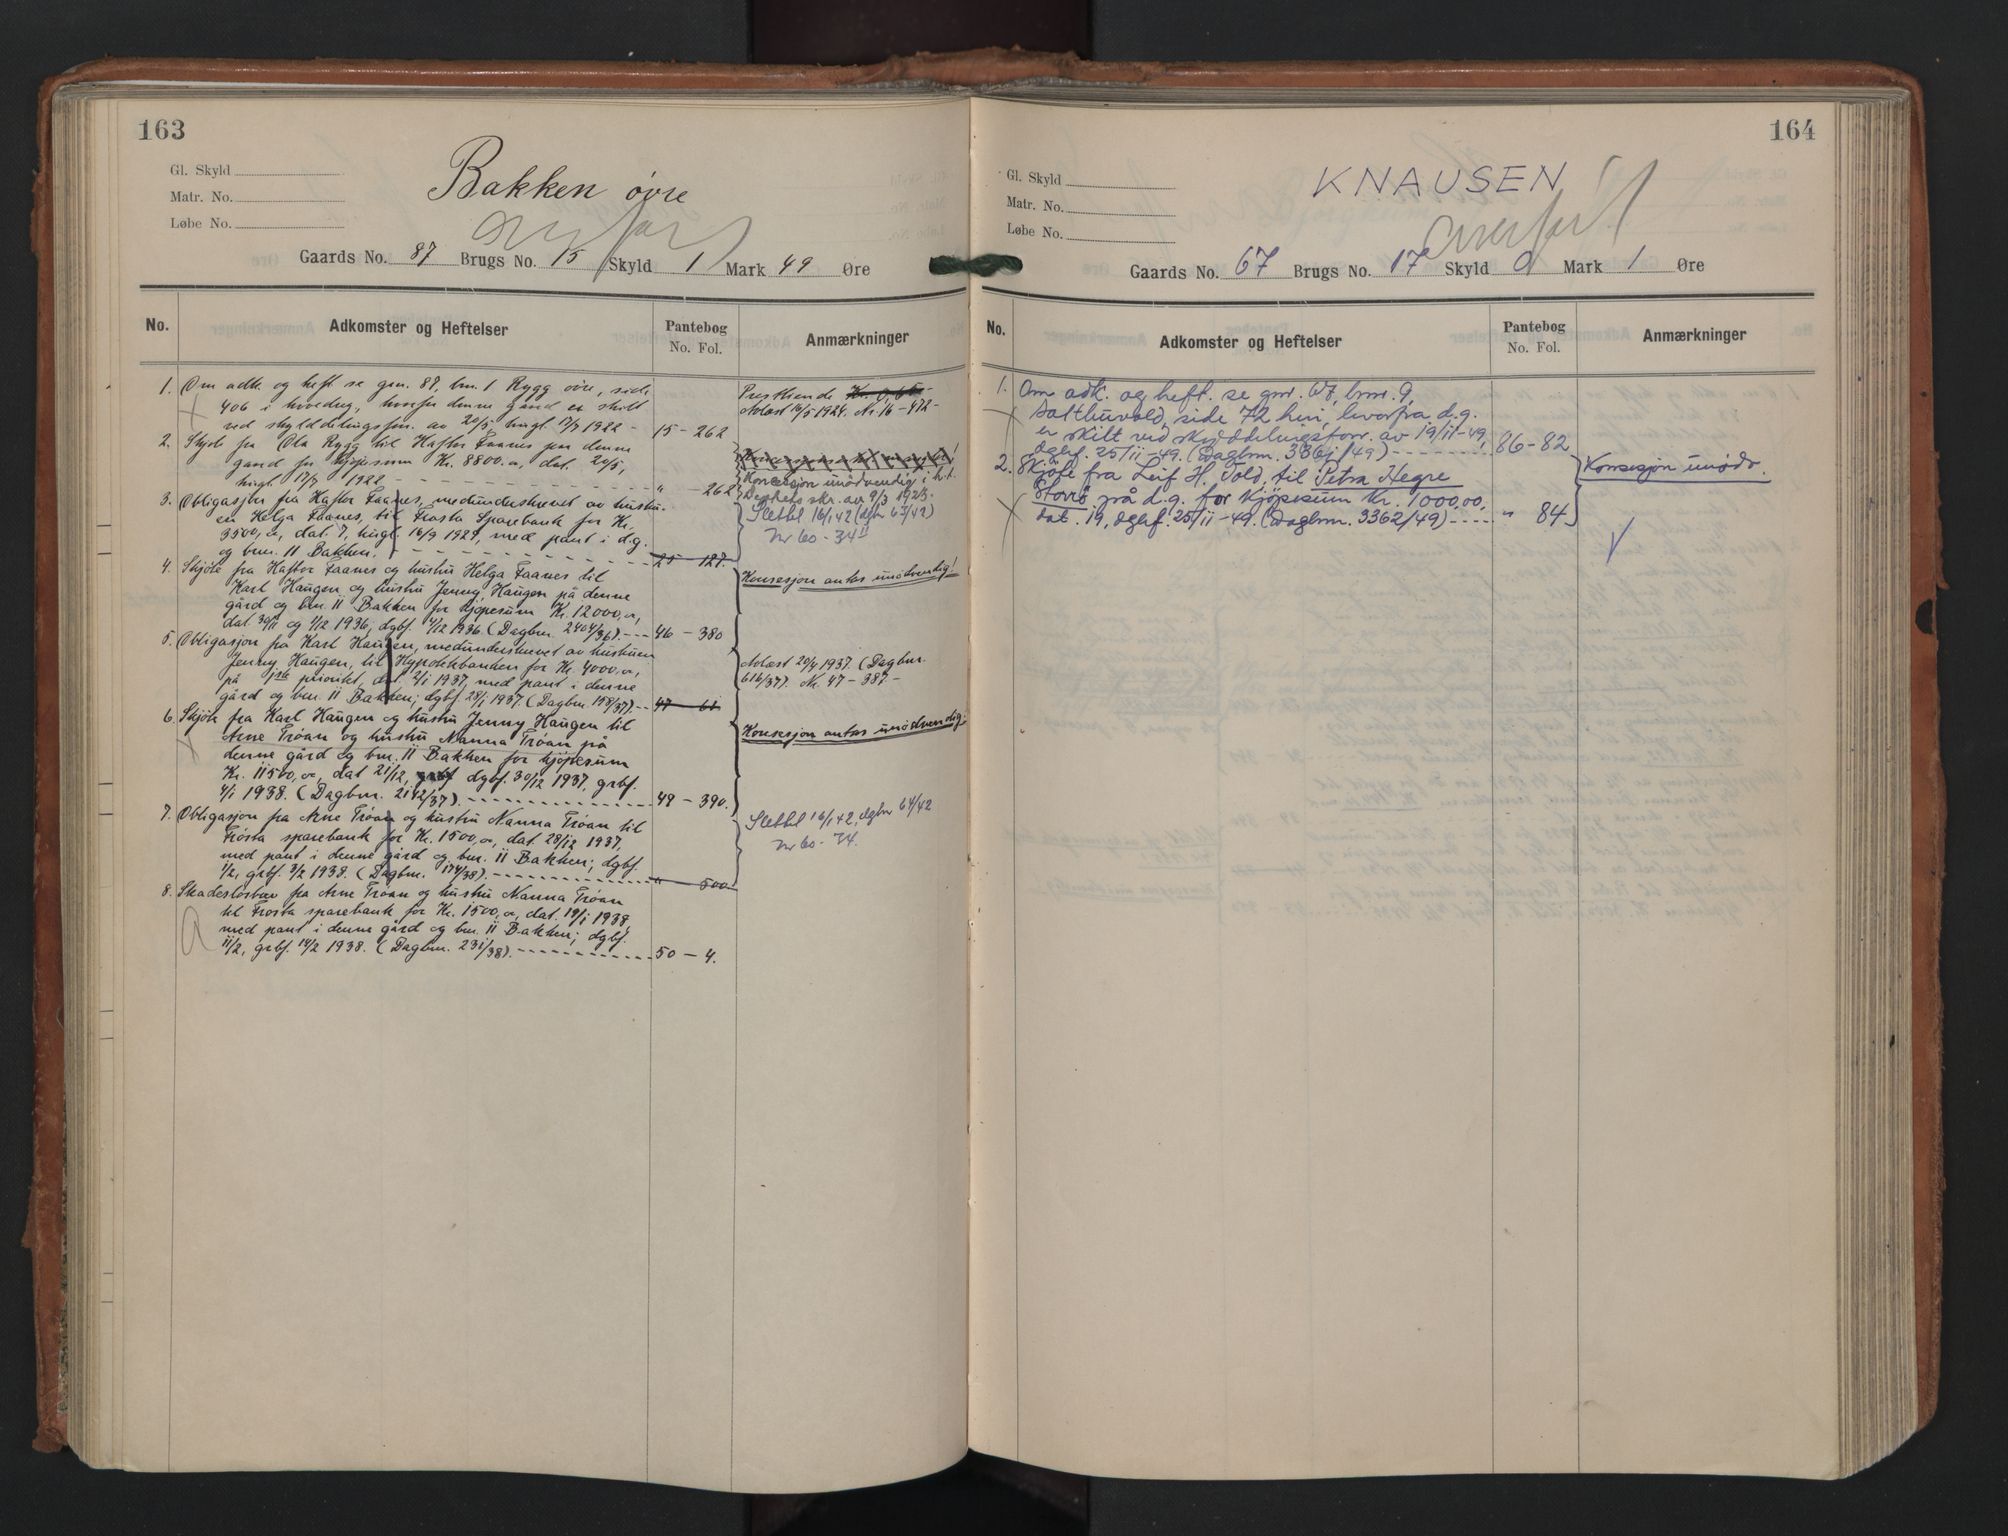 163
Gl. Skyld
Matr. No.
Løbe No.
Bakken øvre
Overført
Gaards No. 87 Brugs No. 15 Skyld 1 Mark 49 Øre
No. Adkomster og Heftelser Pantebog No. Fol. Anmærkninger
1. Om adk. og heft. se gnr. 87, bnr. 1 Rygg øvre, side
406 i hovedreg, hvorfra denne gård er skilt
ved skylddelingsforr. av 20/5, tingl. 17/7 1922 - 15 - 262
Presttiende Kr. 0,
Avløst 16/5 1924. Nr. 16 - 472 -
2. Skjøte fra Ola Rygg til Haftor Faanes på denne
gård for kjøpesum Kr. 8800.00, dat. 20/5,
tingl. 17/7 1922 - - - " - 262
Koncesjon unødvendig i h.t.
Dep.tets skr. av 9/3 1923.
3. Obligasjon fra Haftor Faanes, medunderskrevet av hustru-
en Helga Faanes, til Frosta Sparebank for Kr.
3500,00, dat. 7, tingl. 16/9 1929, med pant i d.g.
og bnr. 11 Bakken. - - - 25 - 127.
Slettet 16/1 42 (dgbr 63/42)
Nr 60 - 34
4. Skjøte fra Haftor Faanes og hustru Helga Faanes til
Karl Haugen og hustru Jenny Haugen på denne
gård og bnr. 11 Bakken for kjøpesum Kr. 12000,00,
dat. 30/11 og 1/12 1936, dgbf. 4/12 1936 (Dagbnr. 2404/36) - - - 46 - 380
Konsesjon antas unødvendig!
5. Obligasjon fra Karl Haugen, medunderskrevet av hustruen
Jenny Haugen, til Hypotekbanken for Kr. 4000,00,
på 1ste prioritet, dat. 2/1 1937, med pant i denne
gård og bnr. 11 Bakken; dgbf. 28/1 1937. (Dagbnr. 158/37). - - 47 - 61
Avløst 20/4 1937. (Dagbnr.
616/37). Nr. 47 - 387 -
6. Skjøte fra Karl Haugen og hustru Jenny Haugen til
Arne Trøan og hustru Nanna Trøan på
denne gård og bnr. 11 Bakken for kjøpesum
Kr. 11500,00, dat 21/12, dgbf. 30/12 1937, grbf.
4/1 1938. (Dagbnr. 2142/37). - - - 49 - 390.
Konsesjon antas unødvendig.
7. Obligasjon fra Arne Trøan og hustru Nanna Trøan til
Frosta sparebank for Kr. 1500,00, dat. 28/12 1937,
med pant i denne gård og bnr. 11 Bakken; dgbf.
1/2, grbf. 3/2 1938. (Dagbnr. 174/38). - - - " - 500
Slettet 16/1 42, dgbr 64/42
Nr 60 - 34.
8. Skadesløsbrev fra Arne Trøan og hustru Nanna Trøan
til Frosta sparebank for Kr. 1500,00, dat. 19/1 1938,
med pant i denne gård og bnr. 11 Bakken; dgbf.
11/2, grbf. 14/2 1938. (Dagbnr. 231/38). - - - 50 - 4.
164
Gl. Skyld
Matr. No.
Løbe No.
KNAUSEN
Overført
Gaards No. 67 Brugs No. 17 Skyld 0 Mark 1 Øre
No. Adkomster og Heftelser Pantebog No. Fol. Anmærkninger
1. Om adk. og heft. se gnr. 67, bnr. 9,
side 72 heri, hvorfra d.g.
er skilt ved skylddelingsforr. av 19/11-49,
dgbf. 25/11-49. (Dagbnr. 3361/49) - - - 86 - 82
2. Skjøte fra Leif H. Vold, til Petra Hegre
Storrø på d.g. for kjøpesum Kr. 1000,00,
dat. 19, dgbf. 25/11-49. (Dagbnr. 3362/49) - - - " 84
Konsesjon unødv.